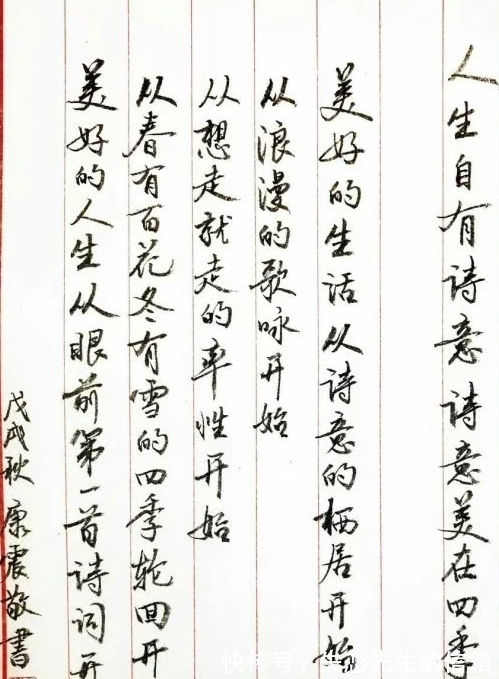 人生自有诗意诗意美在四季
美好的生活从诗意的栖居开始
从浪漫的歌咏开始
从想走就走的率性开始
从春有百花冬有雪的四季轮回开
美好的人生从眼前第一首诗词开
戊戌秋 康震敬書
快传号/
先生的信箱